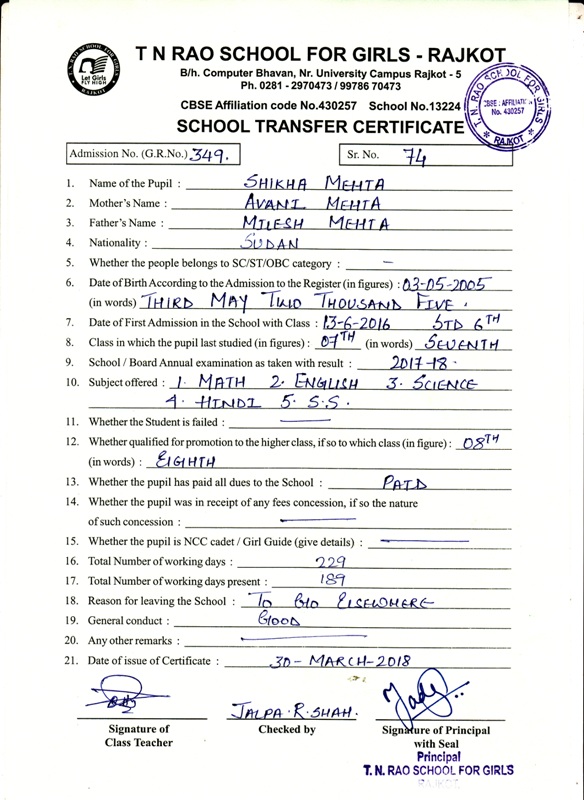 T. N. RAO SCHOOL FOR GIRLS
Let Girls
FLY HIGH
RAJKOT
T N RAO SCHOOL FOR GIRLS - RAJKOT
B/h. Computer Bhavan, Nr. University Campus Rajkot - 5
Ph. 0281 - 2970473 / 99786 70473
CBSE Affiliation code No.430257 School No.13224
SCHOOL TRANSFER CERTIFICATE
T. N. RAO SCHOOL FOR GIRLS
CBSE : AFFILIATION
No. 430257
RAJKOT
Admission No. (G.R.No.) 349. Sr. No. 74
1. Name of the Pupil : SHIKHA MEHTA
2. Mother's Name : AVANI MEHTA
3. Father's Name : MILESH MEHTA
4. Nationality : SUDAN
5. Whether the people belongs to SC/ST/OBC category : –
6. Date of Birth According to the Admission to the Register (in figures) : 03-05-2005
(in words) THIRD MAY TWO THOUSAND FIVE.
7. Date of First Admission in the School with Class : 13-6-2016 STD 6TH
8. Class in which the pupil last studied (in figures) : 07TH (in words) SEVENTH
9. School / Board Annual examination as taken with result : 2017-18.
10. Subject offered : 1. MATH 2. ENGLISH 3. SCIENCE
4. HINDI 5. S.S.
11. Whether the Student is failed : —
12. Whether qualified for promotion to the higher class, if so to which class (in figure) : 08TH
(in words) : EIGHTH
13. Whether the pupil has paid all dues to the School : PAID
14. Whether the pupil was in receipt of any fees concession, if so the nature
of such concession : —
15. Whether the pupil is NCC cadet / Girl Guide (give details) : —
16. Total Number of working days : 229
17. Total Number of working days present : 189
18. Reason for leaving the School : TO GO ELSEWHERE
19. General conduct : GOOD
20. Any other remarks : —
21. Date of issue of Certificate : 30-MARCH-2018
JALPA.R.SHAH.
Signature of
Class Teacher
Checked by
Signature of Principal
with Seal
Principal
T. N. RAO SCHOOL FOR GIRLS
RAJKOT